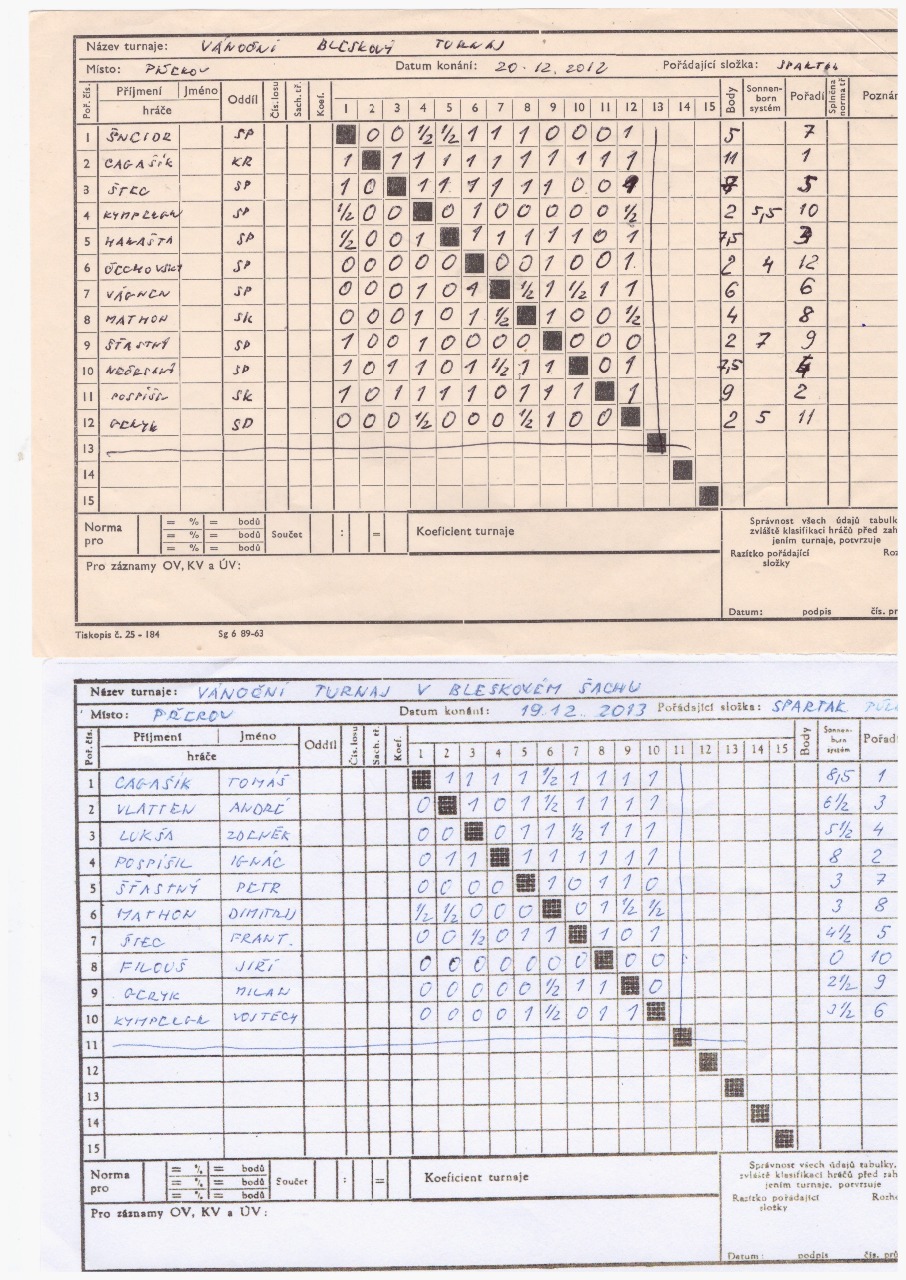 Název turnaje: VÁNOČNÍ BLESKOVÝ TURNAJ
Místo: PŘEROV Datum konání: 20.12.2012 Pořádající složka: SPARTAK
Poř. čís. Příjmení Jméno hráče Oddíl Čís. losu Šach. tř. Koef. 1 2 3 4 5 6 7 8 9 10 11 12 13 14 15 Body Sonnenborn systém Pořadí Splněna norma tř. Poznám
1 ŠNCIDR SP 0 0 ½ ½ 1 1 1 0 0 0 1 5 7
2 CAGAŠÍK KR 1 1 1 1 1 1 1 1 1 1 1 11 1
3 ŠTEC SP 1 0 1 1 1 1 1 1 0 0 7 5
4 KYMPERGR SP ½ 0 0 0 1 0 0 0 0 0 ½ 2 5,5 10
5 HAKAŠTA SP ½ 0 0 1 1 1 1 1 1 0 1 7,5 3
6 SP 0 0 0 0 0 0 0 1 0 0 1 2 4 12
7 VÁGNER SP 0 0 0 1 0 1 ½ 1 ½ 1 1 6 6
8 MATHON SK 0 0 0 1 0 1 ½ 1 0 0 ½ 4 8
9 ŠŤASTNÝ SP 1 0 0 1 0 0 0 0 0 0 0 2 7 9
10 SP 1 0 1 1 0 1 ½ 1 1 0 1 7,5 4
11 POSPÍŠIL SK 1 0 1 1 1 1 0 1 1 1 1 9 2
12 GERYK SP 0 0 0 ½ 0 0 0 ½ 1 0 0 2 5 11
13
14
15
Norma pro = % = bodů Součet : = Koeficient turnaje
= % = bodů
= % = bodů
Správnost všech údajů tabulk
zvláště klasifikaci hráčů před zah
jením turnaje, potvrzuje
Razítko pořádající složky Roz
Pro záznamy OV, KV a ÚV:
Datum: podpis čís. pr
Tiskopis č. 25 - 184 Sg 6 89-63
Název turnaje: VÁNOČNÍ TURNAJ V BLESKOVÉM ŠACHU
Místo: PŘEROV Datum konání: 19.12.2013 Pořádající složka: SPARTAK
Poř. čís. Příjmení Jméno hráče Oddíl Čís. losu Šach. tř. Koef. 1 2 3 4 5 6 7 8 9 10 11 12 13 14 15 Body Sonnenborn systém Pořadí
1 CAGAŠÍK TOMÁŠ 1 1 1 1 ½ 1 1 1 1 8,5 1
2 VLATTEN ANDRÉ 0 1 0 1 ½ 1 1 1 1 6½ 3
3 LUKŠA ZDENĚK 0 0 0 1 1 ½ 1 1 1 5½ 4
4 POSPÍŠIL IGNÁC 0 1 1 1 1 1 1 1 1 8 2
5 ŠŤASTNÝ PETR 0 0 0 0 1 0 1 1 0 3 7
6 MATHON DIMITRIJ ½ ½ 0 0 0 0 1 ½ ½ 3 8
7 ŠTEC FRANT. 0 0 ½ 0 1 1 1 0 1 4½ 5
8 FILOUŠ JIŘÍ 0 0 0 0 0 0 0 0 0 0 10
9 GERYK MILAN 0 0 0 0 0 ½ 1 1 0 2½ 9
10 KYMPERGR VOJTĚCH 0 0 0 0 1 ½ 0 1 1 3½ 6
11
12
13
14
15
Norma pro = % = bodů Součet : = Koeficient turnaje
= % = bodů
= % = bodů
Správnost všech údajů tabulky,
zvláště klasifikaci hráčů před zah
jením turnaje, potvrzuje
Razítko pořádající složky Rozh
Pro záznamy OV, KV a ÚV:
Datum: podpis čís. prů